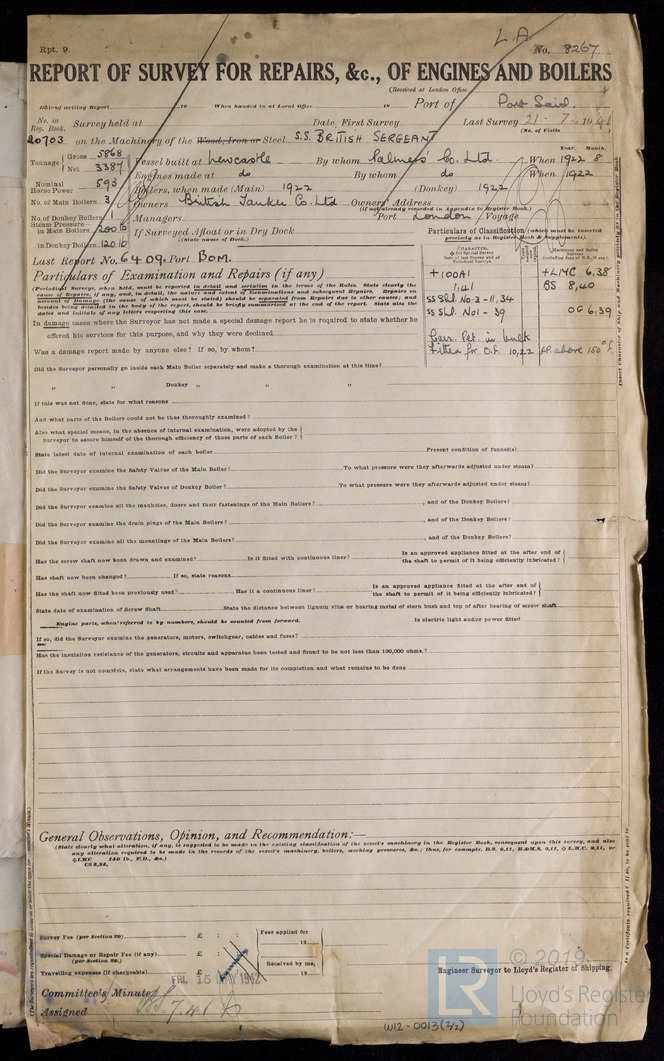 L.A.
Rpt. 9. No. 8267
REPORT OF SURVEY FOR REPAIRS, &c., OF ENGINES AND BOILERS
(Received at London Office
Date of writing Report 19 When handed in at Local Office 19 Port of Port Said.
No. in Reg. Book. Survey held at Date, First Survey Last Survey 21-7-1941
(No. of Visits
20703 on the Machinery of the Wood, Iron or Steel S.S. BRITISH SERGEANT
Tonnage Gross 5868 Net 3387 Vessel built at Newcastle By whom Palmers' Co. Ltd. When 1922 8
Year. Month.
Engines made at do By whom do When 1922
Nominal Horse Power 593 Boilers, when made (Main) 1922 (Donkey) 1922
No. of Main Boilers 3 Owners British Tanker Co. Ltd Owners' Address
(If not already recorded in Appendix to Register Book.)
No. of Donkey Boilers Managers Port London Voyage
Steam Pressure in Main Boilers 200 lb If Surveyed Afloat or in Dry Dock
(State name of Dock.)
in Donkey Boilers 120 lb
Particulars of Classification (which must be inserted precisely as in Register Book & Supplements).
Last Report No. 6409. Port BOM.
+100A1 +LMC 6,38
1,41 BS 8,40
SS Sld. No 3 - 11,34
SS Sld. No1 - 39 OG 6,39
Carr. Pet. in bulk
Fitted for O.F. 10,22 F.P. above 150°F.
Particulars of Examination and Repairs (if any)
(Periodical Surveys, when held, must be reported in detail and seriatim in the terms of the Rules. State clearly the
cause of Repairs, if any, and, in detail, the nature and extent of Examinations and subsequent Repairs. Repairs on
account of Damage (the cause of which must be stated) should be separated from Repairs due to other causes; and
besides being detailed in the body of the report, should be briefly summarised at the end of the report. State also the
dates and initials of any letters respecting this case.
In damage cases where the Surveyor has not made a special damage report he is required to state whether he
offered his services for this purpose, and why they were declined
Was a damage report made by anyone else? If so, by whom?
Did the Surveyor personally go inside each Main Boiler separately and make a thorough examination at this time?
„ „ Donkey „ „ „
If this was not done, state for what reasons
And what parts of the Boilers could not be thus thoroughly examined?
Also what special means, in the absence of internal examination, were adopted by the
Surveyor to assure himself of the thorough efficiency of those parts of each Boiler?
State latest date of internal examination of each boiler Present condition of funnel(s)
Did the Surveyor examine the Safety Valves of the Main Boiler? To what pressure were they afterwards adjusted under steam?
Did the Surveyor examine the Safety Valves of Donkey Boiler? To what pressure were they afterwards adjusted under steam?
Did the Surveyor examine all the manholes, doors and their fastenings of the Main Boilers? , and of the Donkey Boilers?
Did the Surveyor examine the drain plugs of the Main Boilers? , and of the Donkey Boilers?
Did the Surveyor examine all the mountings of the Main Boilers? , and of the Donkey Boilers?
Has the screw shaft now been drawn and examined? Is it fitted with continuous liner? Is an approved appliance fitted at the after end of the shaft to permit of it being efficiently lubricated?
Has shaft now been changed? If so, state reasons
Has the shaft now fitted been previously used? Has it a continuous liner? Is an approved appliance fitted at the after end of the shaft to permit of it being efficiently lubricated?
State date of examination of Screw Shaft State the distance between lignum vitæ or bearing metal of stern bush and top of after bearing of screw shaft
Engine parts, when referred to by numbers, should be counted from forward. Is electric light and/or power fitted
If so, did the Surveyor examine the generators, motors, switchgear, cables and fuses?
Has the insulation resistance of the generators, circuits and apparatus been tested and found to be not less than 100,000 ohms?
If the Survey is not complete, state what arrangements have been made for its completion and what remains to be done
General Observations, Opinion, and Recommendation:—
(State clearly what alteration, if any, is suggested to be made in the existing classification of the vessel's machinery in the Register Book, consequent upon this survey, and also
any alteration required to be made in the records of the vessel's machinery, boilers, working pressures, &c.; thus, for example, B.S. 9,11, B.&M.S. 9,11,
Survey Fee (per Section 29) £ : : Fees applied for 19
Special Damage or Repair Fee (if any) (per Section 29.) £ : :
Travelling expenses (if chargeable) £ : : Received by me, 19
Engineer Surveyor to Lloyd's Register of Shipping.
Committee's Minute
Assigned
© 2019
LR Lloyd's Register Foundation
W12-0013(2/2)